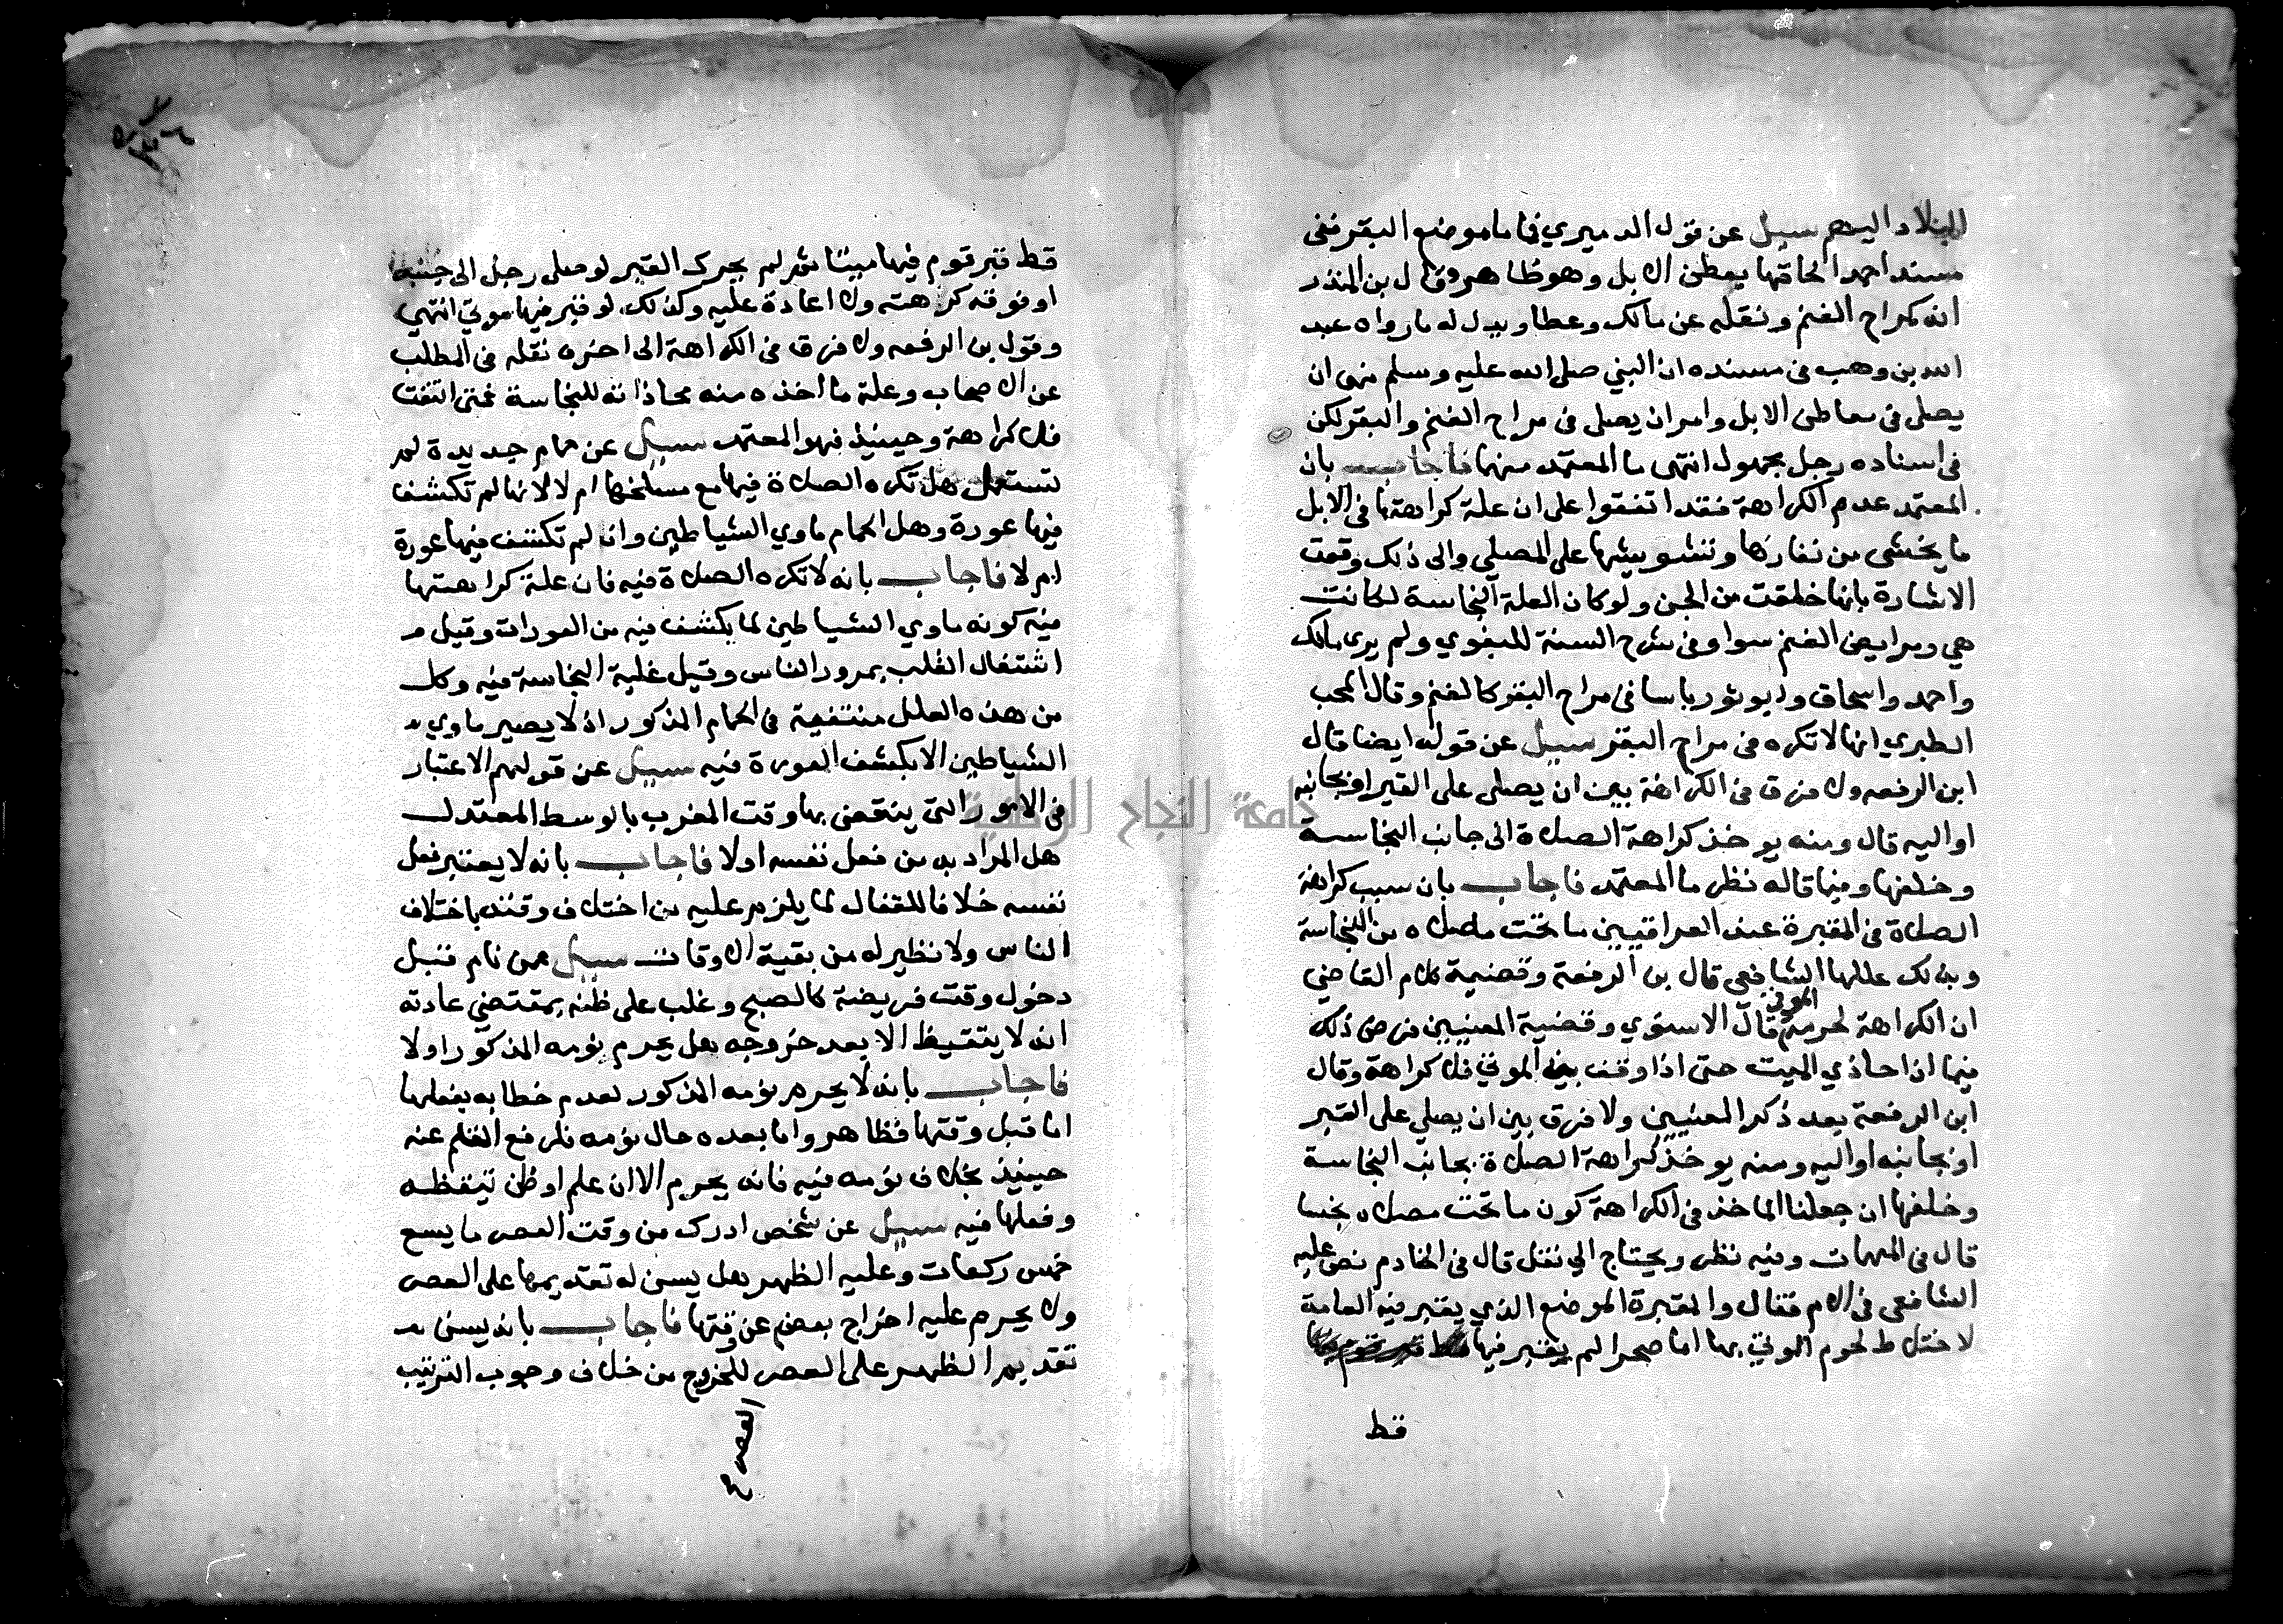 البلاد اليهم سيل عن قول الدميري فاما موضع البقر ففى
مسند احمد الحاقها بعطن الابل وهو ظاهر وقال بن المنذر
انه كمراح الغنم ونقله عن مالك وعطا ويدل له ما رواه عبد
الله بن وهب فى مسنده ان النبي صلى الله عليه وسلم نهى ان
يصلى فى معاطن الابل وامر ان يصلى فى مراح الغنم والبقر لكن
فى اسناده رجل مجهول انتهى ما المعتمد منها فاجاب بان
المعتمد عدم الكراهة فقد اتفقوا على ان علة كراهتها فى الابل
ما يخشى من نفارها وتشويشها على المصلي والى ذلك وقعت
الاشارة بانها خلقت من الجن ولو كان العلة النجاسة لكانت
هي ومرابض الغنم سوا وفى شرح السنة للبغوي ولم يرى مالك
واحمد واسحاق وابو ثور باسا فى مراح البقر كالغنم وقال المحب
الطبري انها لا تكره فى مراح البقر سيل عن قوله ايضا قال
ابن الرفعه ولا فرق فى الكراهة بين ان يصلى على القبر او بجانبه
او اليه قال ومنه يوخذ كراهة الصلاة الى جانب النجاسة
وخلفها وفيما قاله نظر ما المعتمد فاجاب بان سبب كراهة
الصلاة فى المقبرة عند العراقيين ما تحت مصلاه من النجاسة
وبذلك عللها الشافعى قال بن الرفعة وقضية كلام القاضي
ان الكراهة لحرمة الموتى قال الاسنوي وقضية المعنيين فرض ذلك
فيما اذا حاذي الميت حتى اذا وقف بين الموتى فلا كراهة وقال
ابن الرفعة بعد ذكر المعنيين ولا فرق بين ان يصلي على القبر
او بجانبه او اليه ومنه يوخذ كراهة الصلاة بجانب النجاسة
وخلفها ان جعلنا الماخذ فى الكراهة كون ما تحت مصلاه نجسا
قال فى المهمات وفيه نظر ويحتاج الي نقل قال فى الخادم نص عليه
الشافعى فى الام فقال والمقبرة الموضع الذي يقبر فيه العامة
لاختلاط لحوم الموتي بها اما صحرا لم يقبر فيها
قط
قط قبر قوم فيها ميتا ثم لم يحرك القبر لو صلى رجل الى جنبه
او فوقه كرهته ولا اعادة عليه وكذلك لو قبر فيها موتي انتهي
وقول بن الرفعه ولا فرق فى الكراهة الى اخره نقله فى المطلب
عن الاصحاب وعلة ما اخذه منه محاذاته للنجاسة فمتى انتفت
فلا كراهة وحينيذ فهو المعتمد سيل عن حمام جديدة لم
تستعمل هل تكره الصلاة فيها مع مسلخها ام لا لانها لم تكشف
فيها عورة وهل الحمام ماوي الشياطين وان لم تكشف فيها عورة
ام لا فاجاب بانه لا تكره الصلاة فيه فان علة كراهتها
فيه كونه ماوي الشياطين لما يكشف فيه من العورات وقيل
اشتغال القلب بمرور الناس وقيل غلبة النجاسة فيه وكل
من هذه العلل منتفية فى الحمام المذكور اذ لا يصير ماوي
الشياطين الا بكشف العورة فيه سيل عن قولهم الاعتبار
فى الامور التى ينقضى بها وقت المغرب بالوسط المعتدل
هل المراد به من فعل نفسه او لا فاجاب بانه لا يعتبر فعل
نفسه خلافا للقفال لما يلزم عليه من اختلاف وقته باختلاف
الناس ولا نظير له من بقية الاوقات سيل عمن نام قبل
دخول وقت فريضة كالصبح وغلب على ظنه بمقتضي عادته
انه لا يتقيظ الا بعد خروجه هل يحرم نومه المذكور او لا
فاجاب بانه لا يحرم نومه المذكور لعدم خطابه بفعلها
اما قبل وقتها فظاهر واما بعده حال نومه فلرفع القلم عنه
حينيذ بخلاف نومه فيه فانه يحرم الا ان علم او ظن تيقظه
وفعلها فيه سيل عن شخص ادرك من وقت العصر ما يسع
خمس ركعات وعليه الظهر هل يسن له تقديمها على العصر
ولا يحرم عليه اخراج بعضها عن وقتها فاجاب بانه يسن
تقديم الظهر على العصر للخروج من خلاف وجوب الترتيب
جامعة النجاح الوطنية